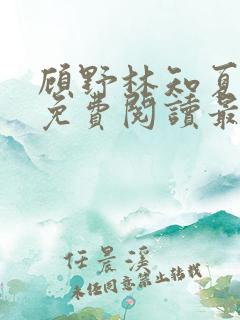 顾野林知夏
免費閱讀最
任晨溪
未经同意禁止转载